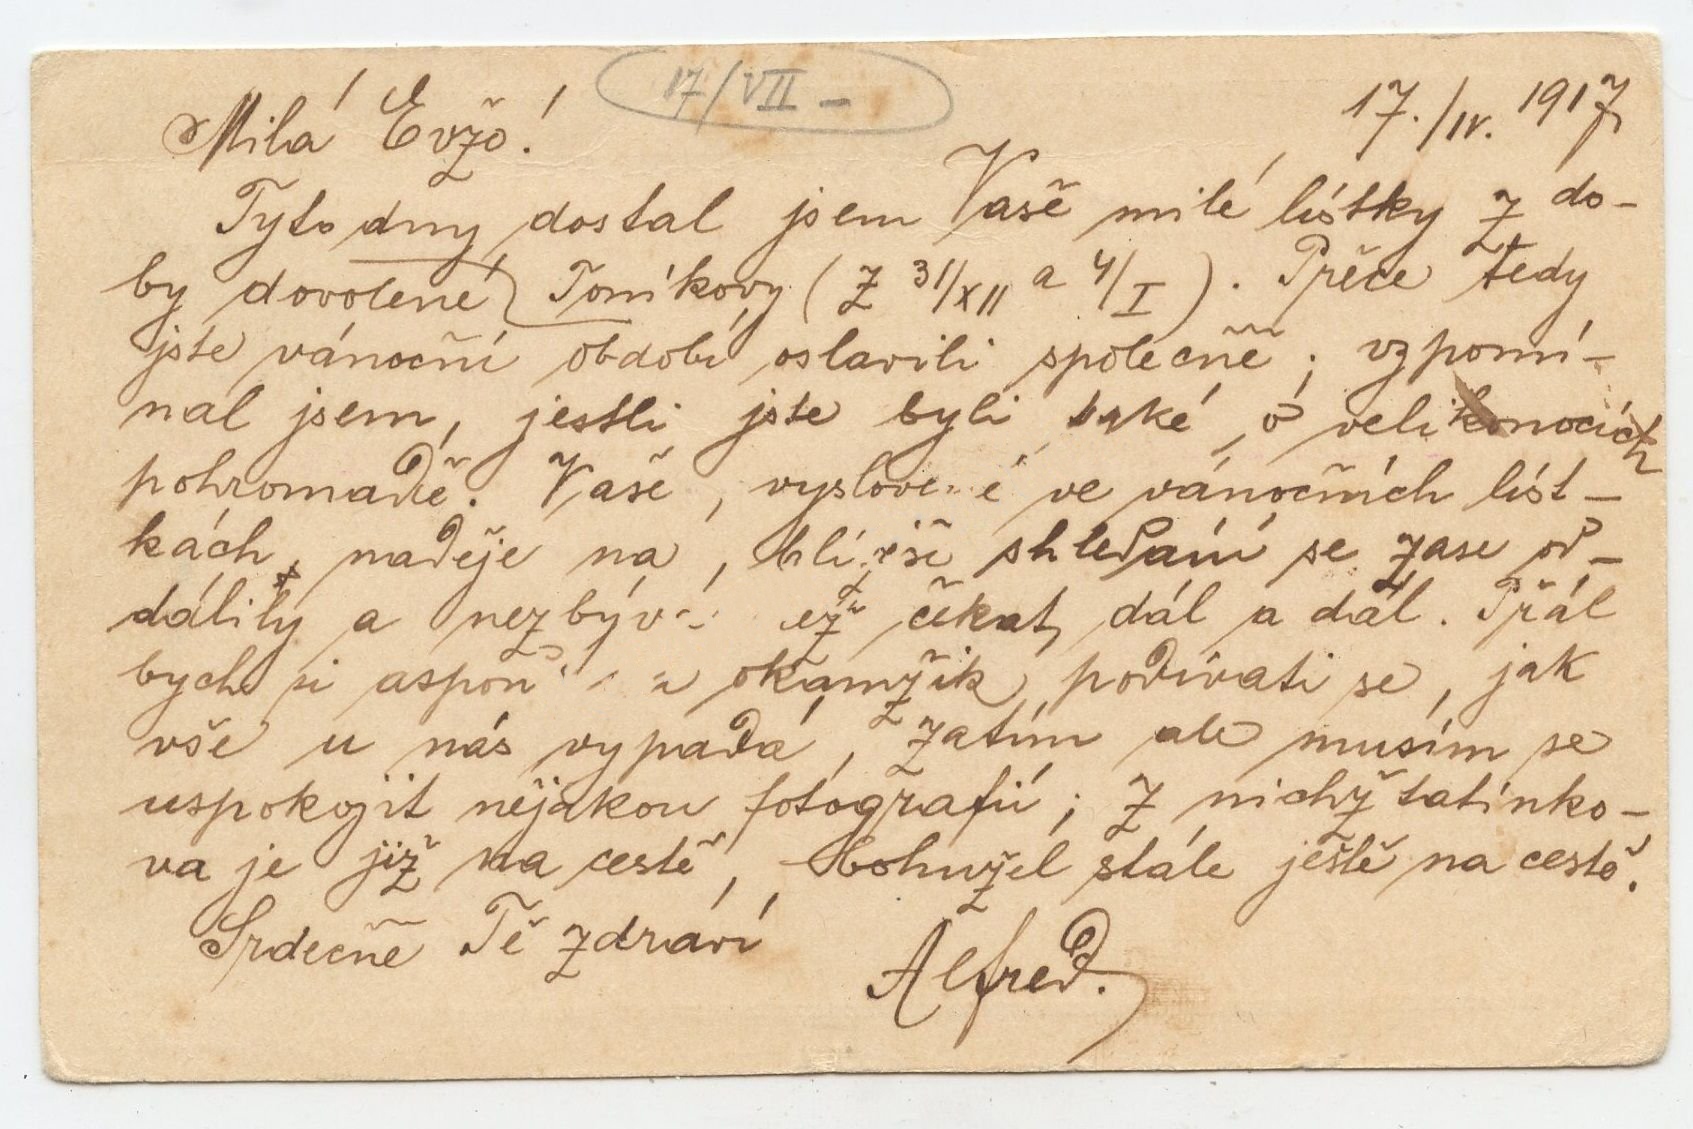 17/VII –
17./IV. 1917
Milá Evžo!
Tyto dny dostal jsem Vaše milé lístky z do-
by dovolené Toníkovy (z 31/XII a 4/I). Přece tedy
jste vánoční období oslavili společně; vzpomí-
nal jsem, jestli jste byli také o velikonocích
pohromadě. Vaše, vyslovené ve vánočních líst-
kách, naděje na, bližší shledání se zase od-
dálily a nezbývá než čekat dál a dál. Přál
bych si aspoň okamžik podívati se, jak
vše u nás vypadá, zatím ale musím se
uspokojit nějakou fotografií; z nichž tatínko-
va je již na cestě, bohužel stále ještě na cestě.
Srdečně Tě zdraví
Alfred.